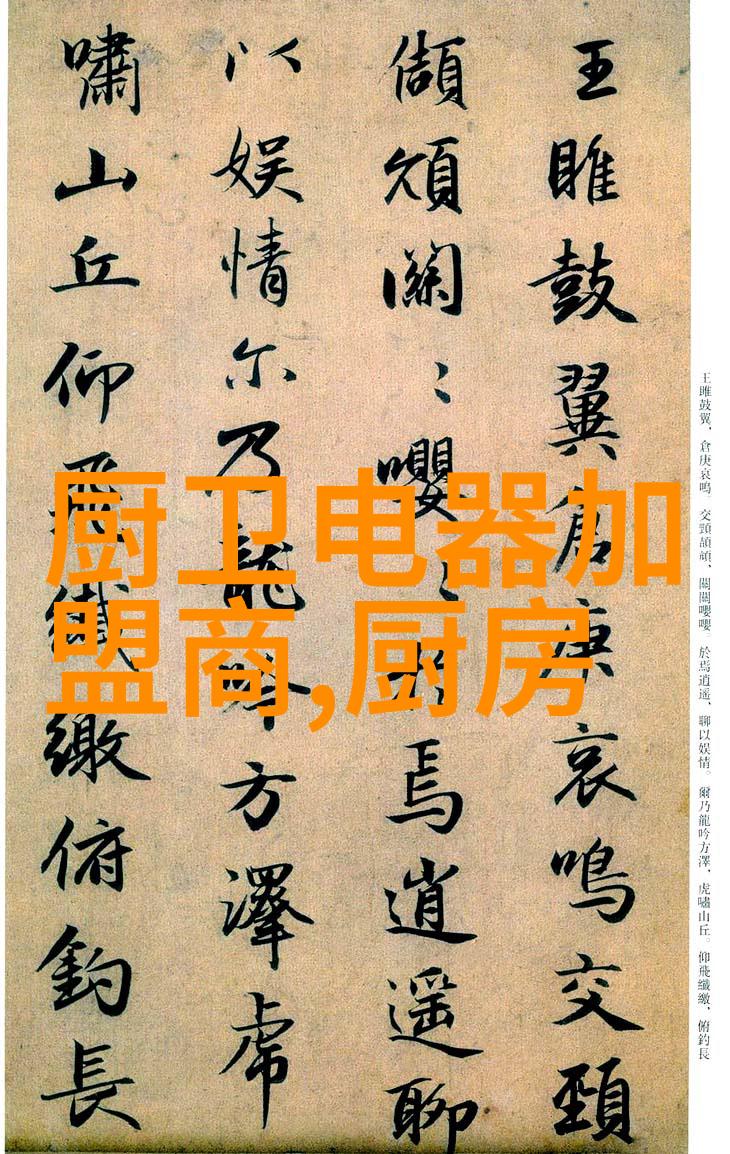 王雎鼓翼倉庚哀鳴交頸
頡頏關〻嚶〻於焉逍遥聊
以娱情尔乃龍吟方澤虎
嘯山丘仰飛纖繳俯釣長
厨卫电器加
盟商,厨房
王雎鼓翼、倉庚哀鳴。交頸頡頏、關關嚶嚶。於焉逍遥、聊以娱情。爾乃龍吟方澤、虎嘯山丘。仰飛纖繳、俯釣長